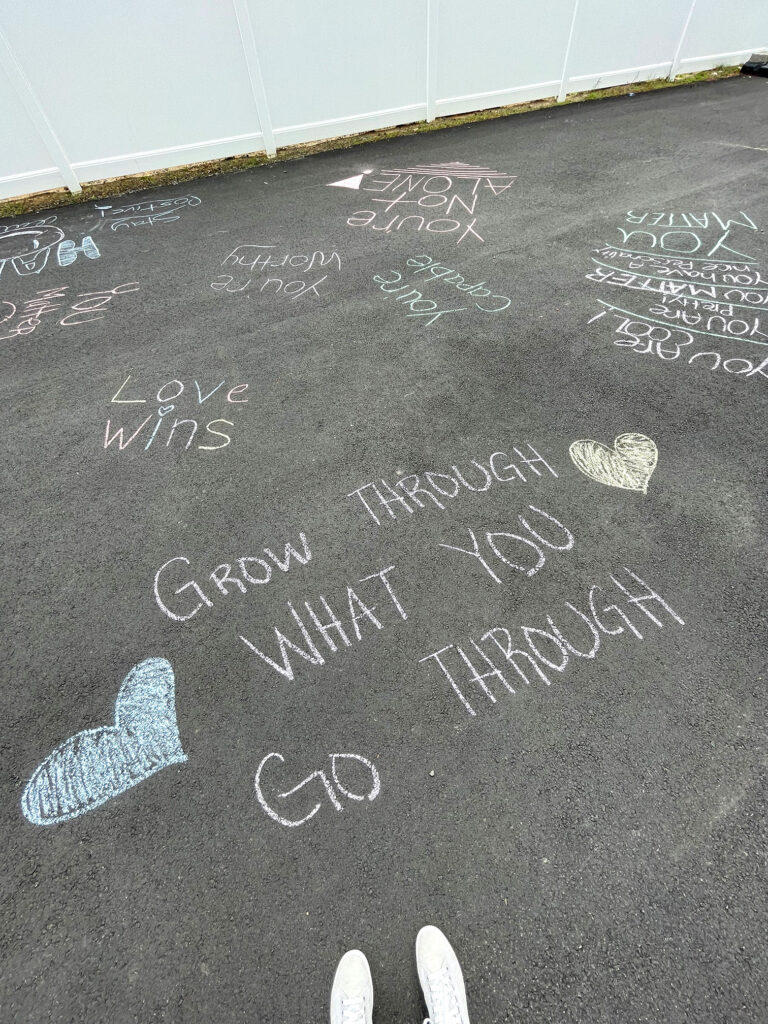 Stay
Positive!
You're
NOT
ALONE
You're
Worthy
You're
capable
YOU ARE
COOL!
YOU ARE
PRETTY!
YOU MATTER
YOU HAVE A
nice Personality
YOU
MATTER
YOU
Love
Wins
GROW THROUGH
WHAT YOU
GO THROUGH